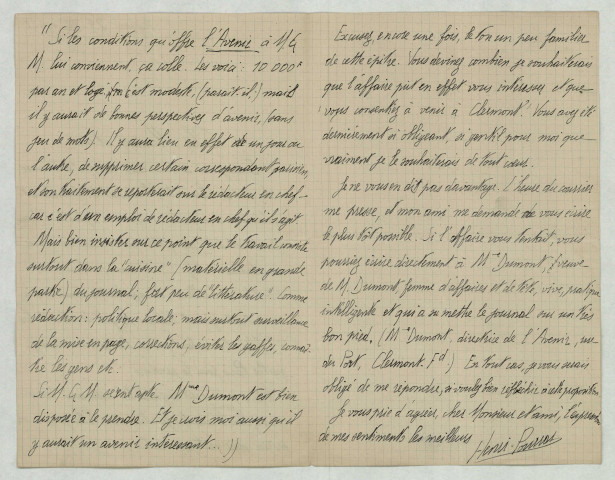 "Si les conditions qu'offre l'Avenir à M. G.
M. lui conviennent, ça colle. Les voici : 10 000 f
par an et logé. C'est modeste, (paraît-il,) mais
il y aurait de bonnes perspectives d'avenir, (sans
jeu de mots). Il y aura lieu en effet un jour ou
l'autre, de supprimer certain correspondant parisien,
et son traitement se reporterait sur le rédacteur en chef -
car c'est d'un emploi de rédacteur en chef qu'il s'agit.
Mais bien insister sur ce point que le travail consiste
surtout dans la "cuisine" (matérielle en grande
partie) du journal ; fort peu de "littérature". Comme
rédaction : politique locale ; mais surtout surveillance
de la mise en page, corrections, éviter les gaffes, connaî-
tre les gens etc.
Si M. G. M. se sent apte Mme Dumont est bien
disposée à le prendre. Et je crois moi aussi qu'il
y aurait un avenir intéressant... ))
Excusez, encore une fois, le ton un peu familier
de cette épître. Vous devinez combien je souhaiterais
que l'affaire pût en effet vous intéresser et que
vous consentiez à venir à Clermont. Vous avez été
dernièrement si obligeant, si gentil pour moi que
vraiment je le souhaiterais de tout cœur.
Je ne vous en dit pas davantage. L'heure du courrier
me presse, et mon ami me demande de vous écrire
le plus tôt possible. Si l'affaire vous tentait, vous
pourriez écrire directement à Mme Dumont, (veuve
de M. Dumont femme d'affaires et de tête, vive, pratique
intelligente et qui a su mettre le journal sur un très
bon pied. (Mme Dumont, directrice de l'Avenir, rue
du Port, Clermont-Fd) En tout cas, je vous serais
obligé de me répondre, si voulez bien réfléchir à cette proposition
Je vous prie d'agréer, cher Monsieur et ami, l'expression
de mes sentiments les meilleurs
Henri